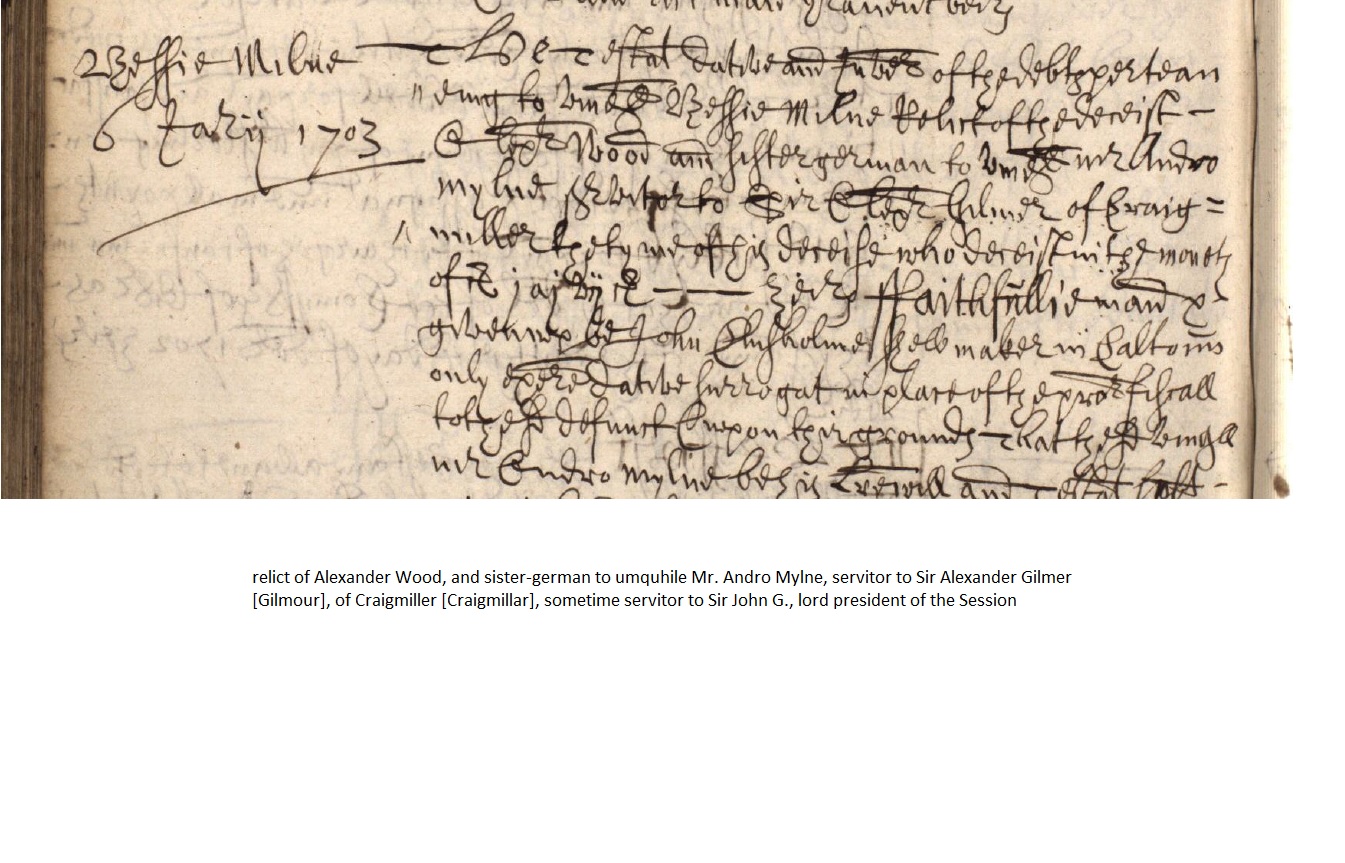 Bessie Milne
6 Jarij 1703
The Testat dative and Inverʸ of the debts pertean
"eing to Umqll Bessie Milne Relict of the deceist -
Alexr Wood and sister german to Umqll mr Andro
mylne servitor to Sir Alexr Gilmer of Craig =
" miller the tyme of hir deceise who deceist in the moneth
of jaj vij
zeirs ffaithfullie maid &
given up be John Chisholme maker in Caltoun
only exere dative surrogat in place of the prorfiscall
to the sd defunct Upon thir grounds That the sd Umqll
mr Andro mylne be his Lrewill and Testat
relict of Alexander Wood, and sister-german to umquhile Mr. Andro Mylne, servitor to Sir Alexander Gilmer
[Gilmour], of Craigmiller [Craigmillar], sometime servitor to Sir John G., lord president of the Session